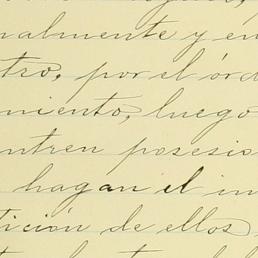 nalmente y en
tro, por el órd
miento, luego
entren posesio
hagan el in
tición de ellos